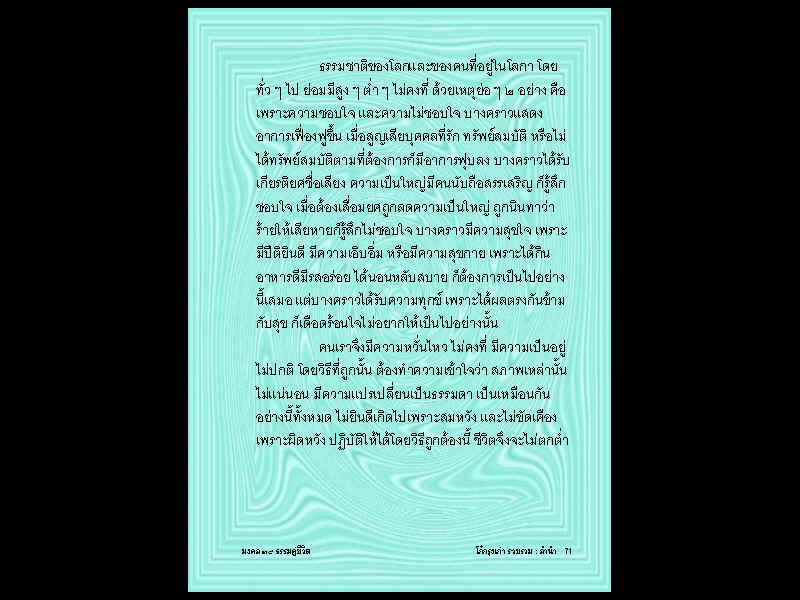 ธรรมชาติของโลกและของคนที่อยู่ในโลกา โดย
ทั่ว ๆ ไป ย่อมมีสูง ๆ ต่ำ ๆ ไม่คงที่ ด้วยเหตุย่อ ๆ ๒ อย่าง คือ
เพราะความชอบใจ และความไม่ชอบใจ บางคราวแสดง
อาการเฟื่องฟูขึ้น เมื่อสูญเสียบุคคลที่รัก ทรัพย์สมบัติ หรือไม่
ได้ทรัพย์สมบัติตามที่ต้องการก็มีอาการฟุบลง บางคราวได้รับ
เกียรติยศชื่อเสียง ความเป็นใหญ่มีคนนับถือสรรเสริญ ก็รู้สึก
ชอบใจ เมื่อต้องเสื่อมยศถูกลดความเป็นใหญ่ ถูกนินทาว่า
ร้ายให้เสียหายก็รู้สึกไม่ชอบใจ บางคราวมีความสุขใจ เพราะ
มีปีติยินดี มีความเอิบอิ่ม หรือมีความสุขกาย เพราะได้กิน
อาหารดีมีรสอร่อย ได้นอนหลับสบาย ก็ต้องการเป็นไปอย่าง
นี้เสมอ แต่บางคราวได้รับความทุกข์ เพราะได้ผลตรงกันข้าม
กับสุข ก็เดือดร้อนใจไม่อยากให้เป็นไปอย่างนั้น
คนเราจึงมีความหวั่นไหว ไม่คงที่ มีความเป็นอยู่
ไม่ปกติ โดยวิธีที่ถูกนั้น ต้องทำความเข้าใจว่า สภาพเหล่านั้น
ไม่แน่นอน มีความแปรเปลี่ยนเป็นธรรมดา เป็นเหมือนกัน
อย่างนี้ทั้งหมด ไม่ยินดีเกิดไปเพราะสมหวัง และไม่ขัดเคือง
เพราะผิดหวัง ปฏิบัติให้ได้โดยวิธีถูกต้องนี้ ชีวิตจึงจะไม่ตกต่ำ
มงคล ๓๘ ธรรมคู่ชีวิต
โก๋กรุงเก่า รวบรวม : ลำนำ 71